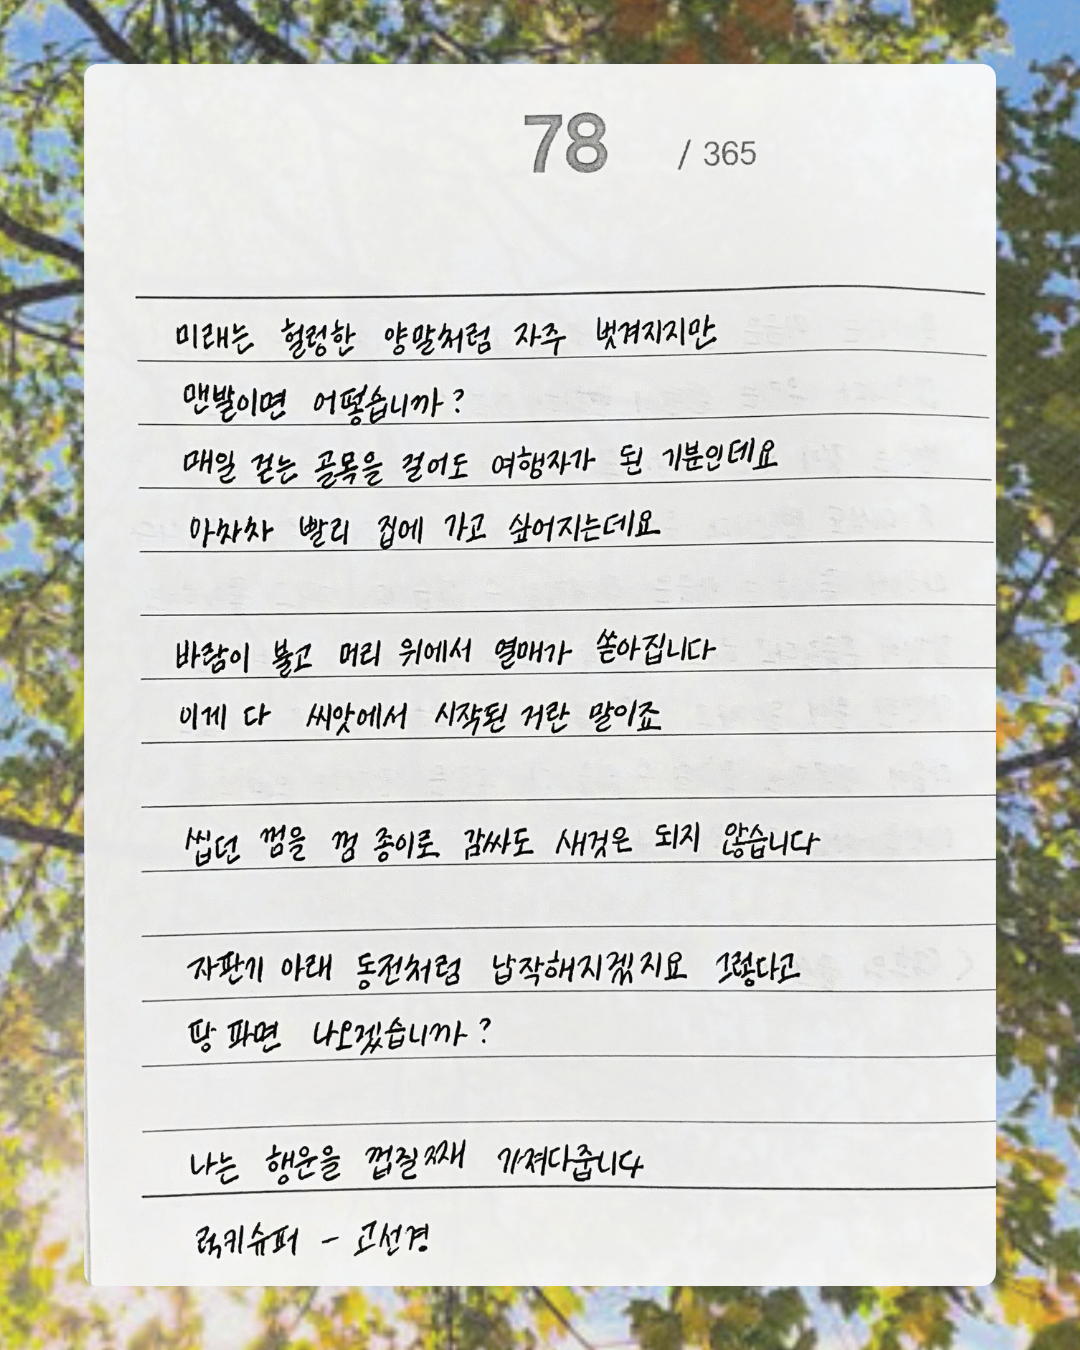 78 / 365
미래는 헐렁한 양말처럼 자주 벗겨지지만
맨발이면 어떻습니까?
매일 걷는 골목을 걸어도 여행자가 된 기분인데요
아차차 빨리 집에 가고 싶어지는데요
바람이 불고 머리 위에서 열매가 쏟아집니다
이게 다 씨앗에서 시작된 거란 말이죠
씹던 껌을 껌 종이로 감싸도 새것은 되지 않습니다
자판기 아래 동전처럼 납작해지겠지요 그렇다고
땅 파면 나오겠습니까?
나는 행운을 껍질째 가져다줍니다
럭키슈퍼 - 고선경